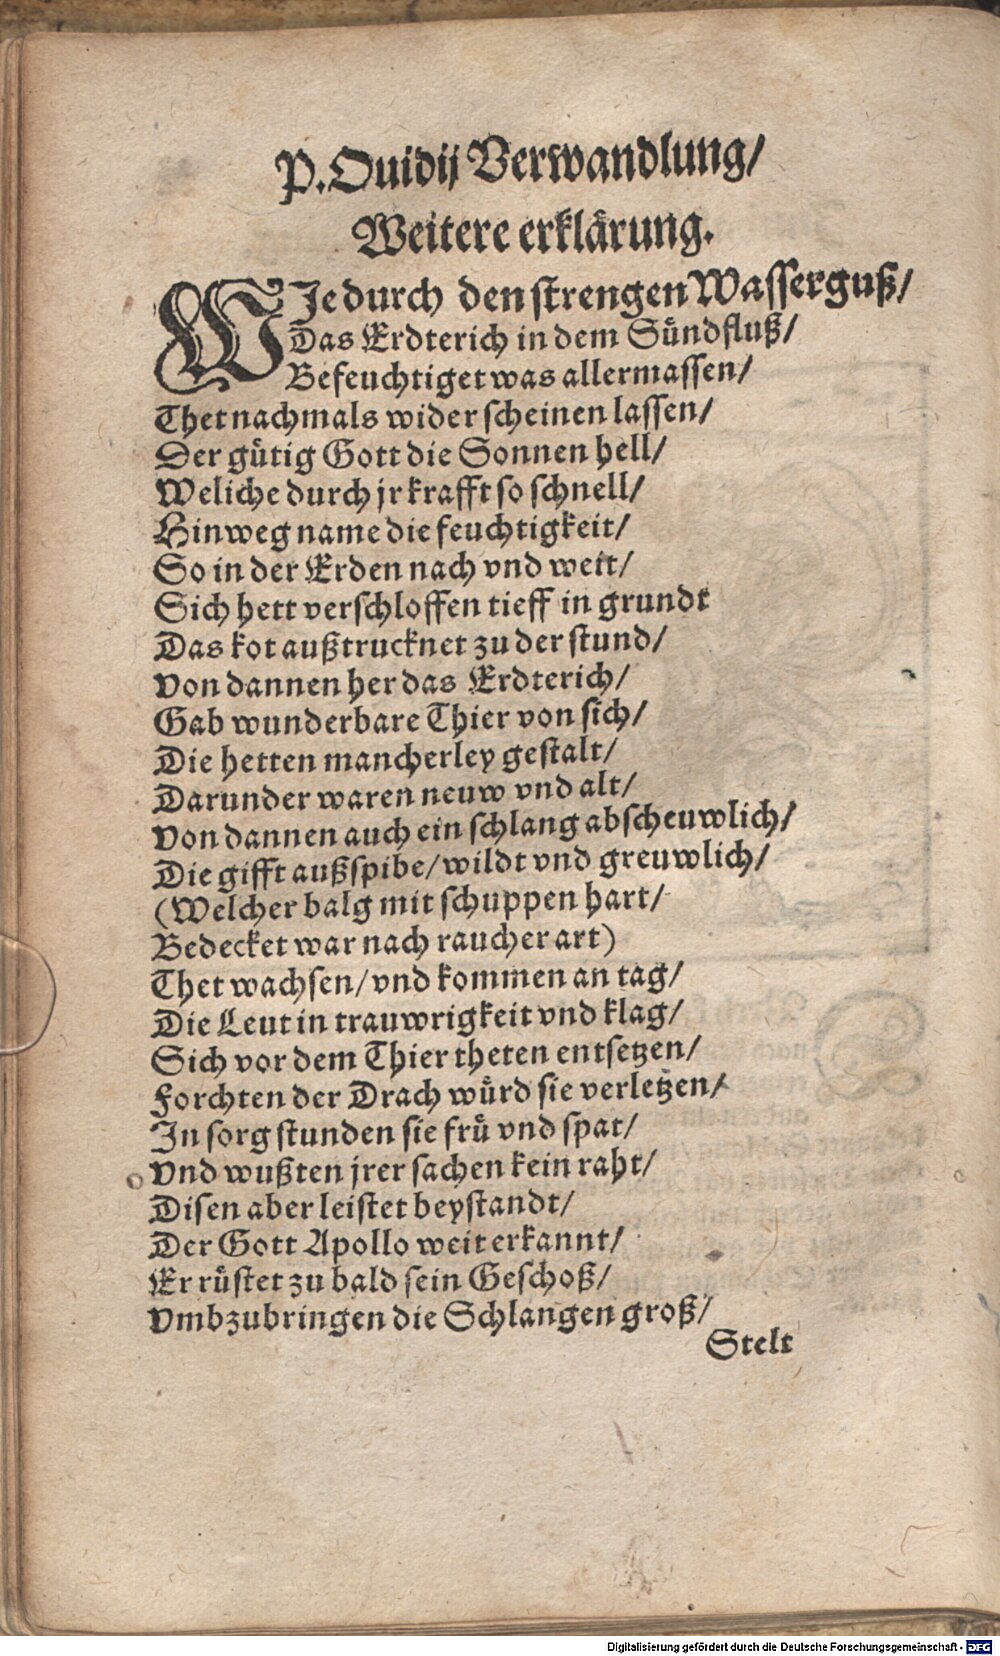 P. Ouidij Verwandlung/
Weitere erklärung.
WJe durch den strengen Wasserguß/
Das Erdterich in dem Sündfluß/
Befeuchtiget was allermassen/
Thet nachmals wider scheinen lassen/
Der gütig Gott die Sonnen hell/
Weliche durch jr krafft so schnell/
Hinweg name die feuchtigkeit/
So in der Erden nach vnd weit/
Sich hett verschloffen tieff in grundt
Das kot außtrucknet zu der stund/
Von dannen her das Erdterich/
Gab wunderbare Thier von sich/
Die hetten mancherley gestalt/
Darunder waren neuw vnd alt/
Von dannen auch ein schlang abscheuwlich/
Die gifft außspibe/ wildt vnd greuwlich/
(Welcher balg mit schuppen hart/
Bedecket war nach raucher art)
Thet wachsen/ vnd kommen an tag/
Die Leut in trauwrigkeit vnd klag/
Sich vor dem Thier theten entsetzen/
Forchten der Drach würd sie verletzen/
In sorg stunden sie frü vnd spat/
Vnd wußten jrer sachen kein raht/
Disen aber leistet beystandt/
Der Gott Apollo weit erkannt/
Er rüstet zu bald sein Geschoß/
Vmbzubringen die Schlangen groß/
Stelt
Digitalisierung gefördert durch die Deutsche Forschungsgemeinschaft - DFG